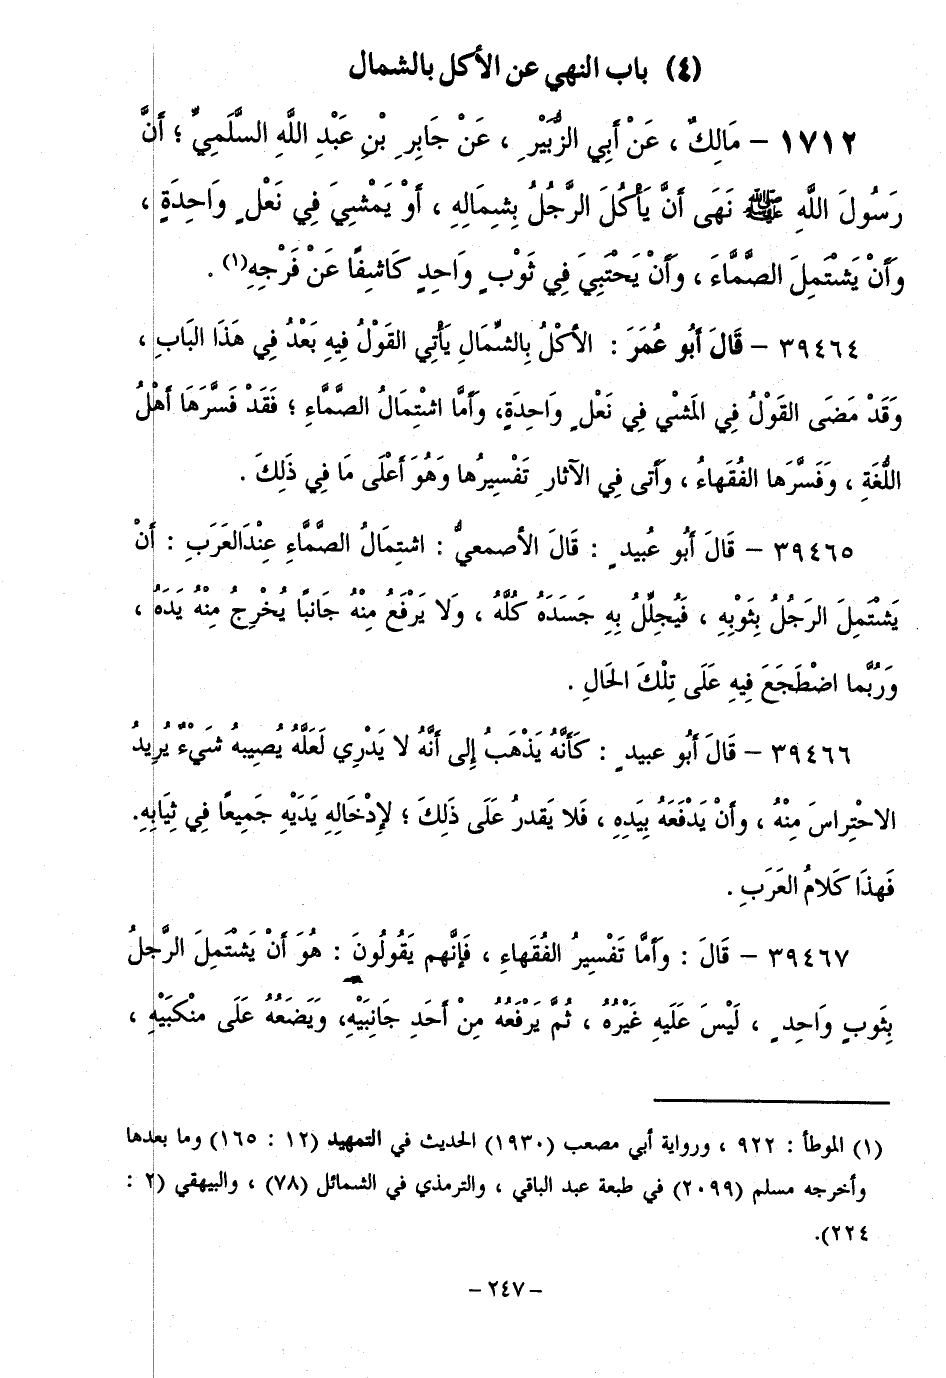 (٤) باب النهي عن الأكل بالشمال
١٧١٢ – مَالِكٌ ، عَنْ أَبِي الزُّبَيْرِ ، عَنْ جَابِرِ بْنِ عَبْدِ اللَّهِ السَّلَمِيِّ ؛ أَنَّ
رَسُولَ اللَّهِ ﷺ نَهَى أَنَّ يَأْكُلَ الرَّجُلُ بِشِمَالِهِ ، أَوْ يَمْشِيَ فِي نَعْلٍ وَاحِدَةٍ ،
وَأَنْ يَشْتَمِلَ الصَّمَّاءَ ، وَأَنْ يَحْتَبِيَ فِي ثَوْبٍ وَاحِدٍ كَاشِفًا عَنْ فَرْجِهِ(١) .
٣٩٤٦٤ – قَالَ أَبُو عُمَرَ : الأكْلُ بِالشِّمَالِ يَأْتِي القَوْلُ فِيهِ بَعْدُ فِي هَذَا البَابِ ،
وَقَدْ مَضَى القَوْلُ فِي المَشْيِ فِي نَعْلٍ وَاحِدَةٍ، وَأَمَّا اشْتِمَالُ الصَّمَّاءِ ؛ فَقَدْ فَسَّرَهَا أَهْلُ
اللُّغَةِ ، وَفَسَّرَها الفُقَهاءُ ، وَأَتى فِي الآثارِ تَفْسِيرُها وَهُوَ أَعْلَى مَا فِي ذَلِكَ .
٣٩٤٦٥ – قَالَ أَبُو عُبيدٍ : قَالَ الأصمعيُّ : اشتِمَالُ الصَّمَّاءِ عِنْدَالعَرَبِ : أَنْ
يَشْتَمِلَ الرَجُلُ بِثَوْبِهِ ، فَيُجلِّلُ بِهِ جَسَدَهُ كُلَّهُ ، وَلا يَرْفَعُ مِنْهُ جَانبًا يُخْرِجُ مِنْهُ يَدَهُ ،
وَرُبَّما اضْطَجَعَ فِيهِ عَلَى تِلْكَ الحَالِ .
٣٩٤٦٦ – قَالَ أَبُو عبيدٍ : كَأَنَّهُ يَذْهَبُ إِلى أَنَّهُ لا يَدْرِي لَعَلَّهُ يُصِيبهُ شَيْءٌ يُرِيدُ
الاحْتِراسَ مِنْهُ ، وأَنْ يَدْفَعَهُ بِيَدِهِ ، فَلا يَقدرُ عَلَى ذَلِكَ ؛ لإِدْخَالِهِ يَدَيْهِ جَمِيعًا فِي ثِيَابِهِ.
فَهذَا كَلامُ العَرَبِ .
٣٩٤٦٧ – قَالَ : وَأَمَّا تَفْسِيرُ الفُقَهاءِ ، فَإِنَّهم يَقُولُونَ : هُوَ أَنْ يَشْتَمِلَ الرَّجلُ
بِثَوبٍ وَاحِدٍ ، لَيْسَ عَلَيهِ غَيْرُهُ ، ثُمَّ يَرْفَعُهُ مِنْ أَحَدِ جَانِبَيْهِ، وَيَضَعُهُ عَلَى مَنْكبَيْهِ ،
(١) الموطأ : ٩٢٢ ، ورواية أبي مصعب (١٩٣٠) الحديث في التمهيد (١٢ : ١٦٥) وما بعدها
وأخرجه مسلم (٢٠٩٩) في طبعة عبد الباقي ، والترمذي في الشمائل (٧٨) ، والبيهقي (٢ :
٢٢٤).
– ٢٤٧ –